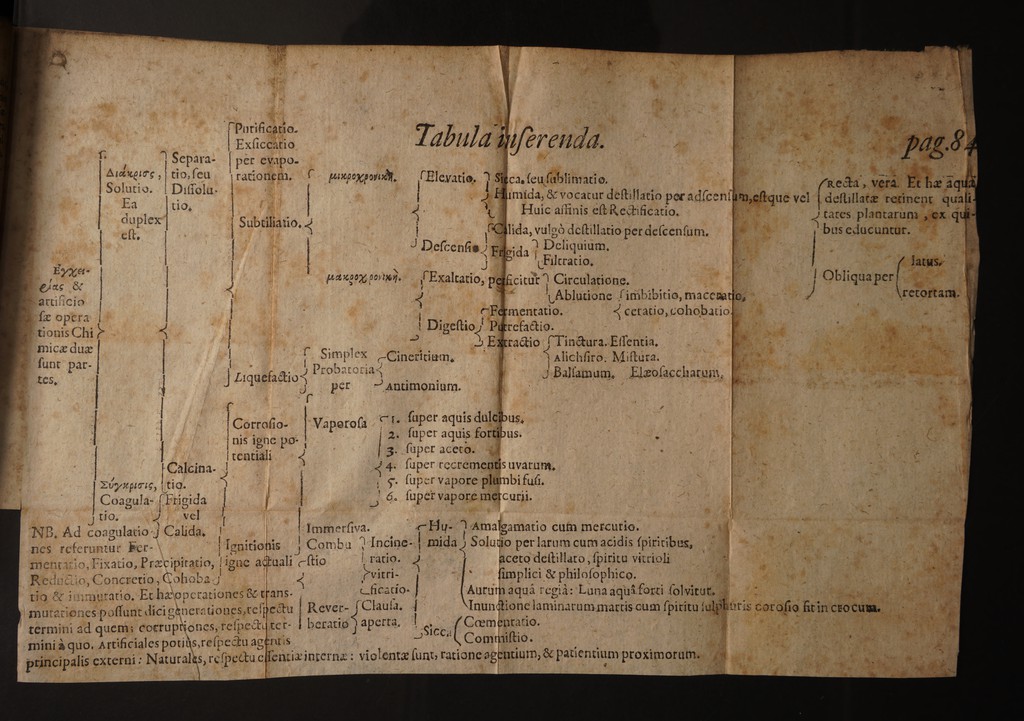 Tabula inserenda.
pag. 84
Εγχει-
ρίας &
artificio
sæ opera
tionis Chi
micæ duæ
sunt par-
tes.
Διάκρισις,
Solutio.
Ea
duplex
est.
Separa-
tio, seu
Dissolu-
tio.
Purificatio.
Exsiccatio
per evapo-
rationem.
Subtiliatio.
μικροχρονική.
Elevatio.
Sicca. seu sublimatio.
Humida, & vocatur destillatio per adscensum, estque vel
Huic affinis est Rectificatio.
Recta, vera. Et hæ aquæ
destillatæ retinent quali-
tates plantarum, ex qui-
bus educuntur.
Obliqua per
latus.
retortam.
Descensio
Calida, vulgò destillatio per descensum.
Frigida
Deliquium.
Filtratio.
μακροχρονική.
Exaltatio, perficitur
Circulatione.
Ablutione
imbibitio, maceratio,
ceratio, cohobatio.
Digestio
Fermentatio.
Putrefactio.
Extractio
Tinctura. Essentia.
Alichsiro. Mistura.
Balsamum. Elæosaccharum.
Liquefactio
Simplex
Probatoria
per
Cineritium.
Antimonium.
Calcina-
tio.
Corrosio-
nis igne po-
tentiali
Vaporosa
1. super aquis dulcibus.
2. super aquis fortibus.
3. super aceto.
4. super recrementis uvarum.
5. super vapore plumbi fusi.
6. super vapore mercurii.
Immersiva.
Hu-
mida
Amalgamatio cum mercurio.
Solutio per larum cum acidis spiritibus,
aceto destillato, spiritu vitrioli
simplici & philosophico.
Aurum aquâ regiâ: Luna aquâ forti solvitur.
Inunctione laminarum martis cum spiritu sulphuris corosio fit in crocum.
Sicca
Cœmentatio.
Commistio.
Ignitionis
igne actuali
Combu
stio
Incine-
ratio.
vitri-
ficatio.
Rever-
beratio
Clausa.
aperta.
Σύγκρισις,
Coagula-
tio.
Frigida
vel
Calida.
NB. Ad coagulatio-
nes referuntur Fer-
mentatio, Fixatio, Præcipitatio,
Reductio, Concretio, Cohoba
tio & immutatio. Et hæ operationes & trans-
mutationes possunt dici generationes, respectu
termini ad quem: corruptiones, respectu ter-
mini à quo. Artificiales potiùs, respectu agentis
principalis externi: Naturales, respectu essentiæ internæ: violentæ sunt, ratione agentium, & patientium proximorum.